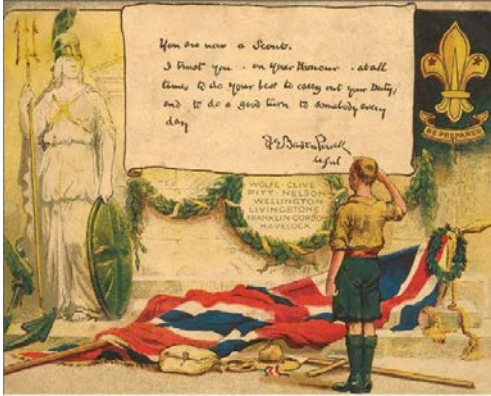 You are now a Scout.
I trust you - on your Honour - at all
times to do your best to carry out your Duty;
and to do a good turn to somebody every
day
BE PREPARED
WOLFE - CLIVE
PITT - NELSON
WELLINGTON
LIVINGSTONE
FRANKLIN GORDON
HAVELOCK